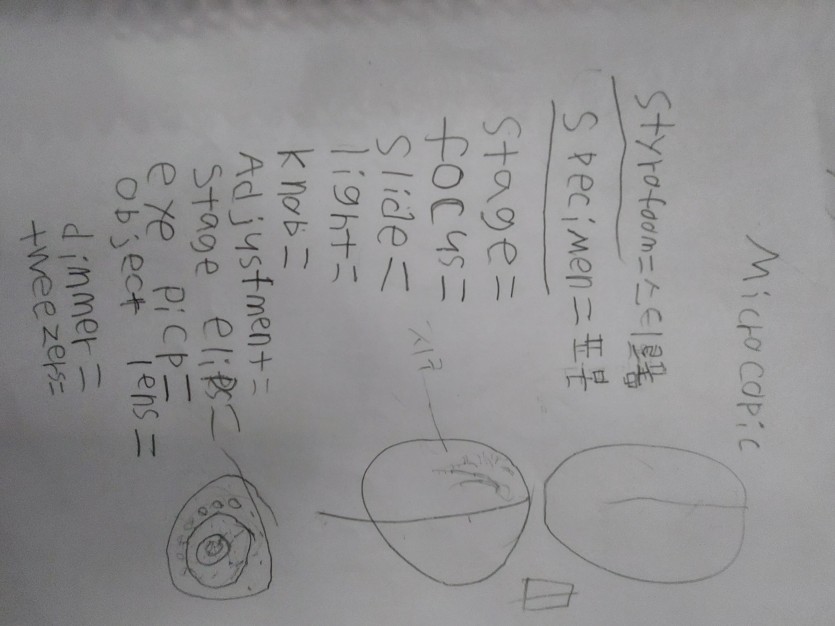 Microcapic
Styrofoam=스티로폼
Specimen=표본
Stage=
focus=
Slide=
light=
knob=
Adjustment=
Stage clips=
eye picp=
object lens=
dimmer=
tweezers=